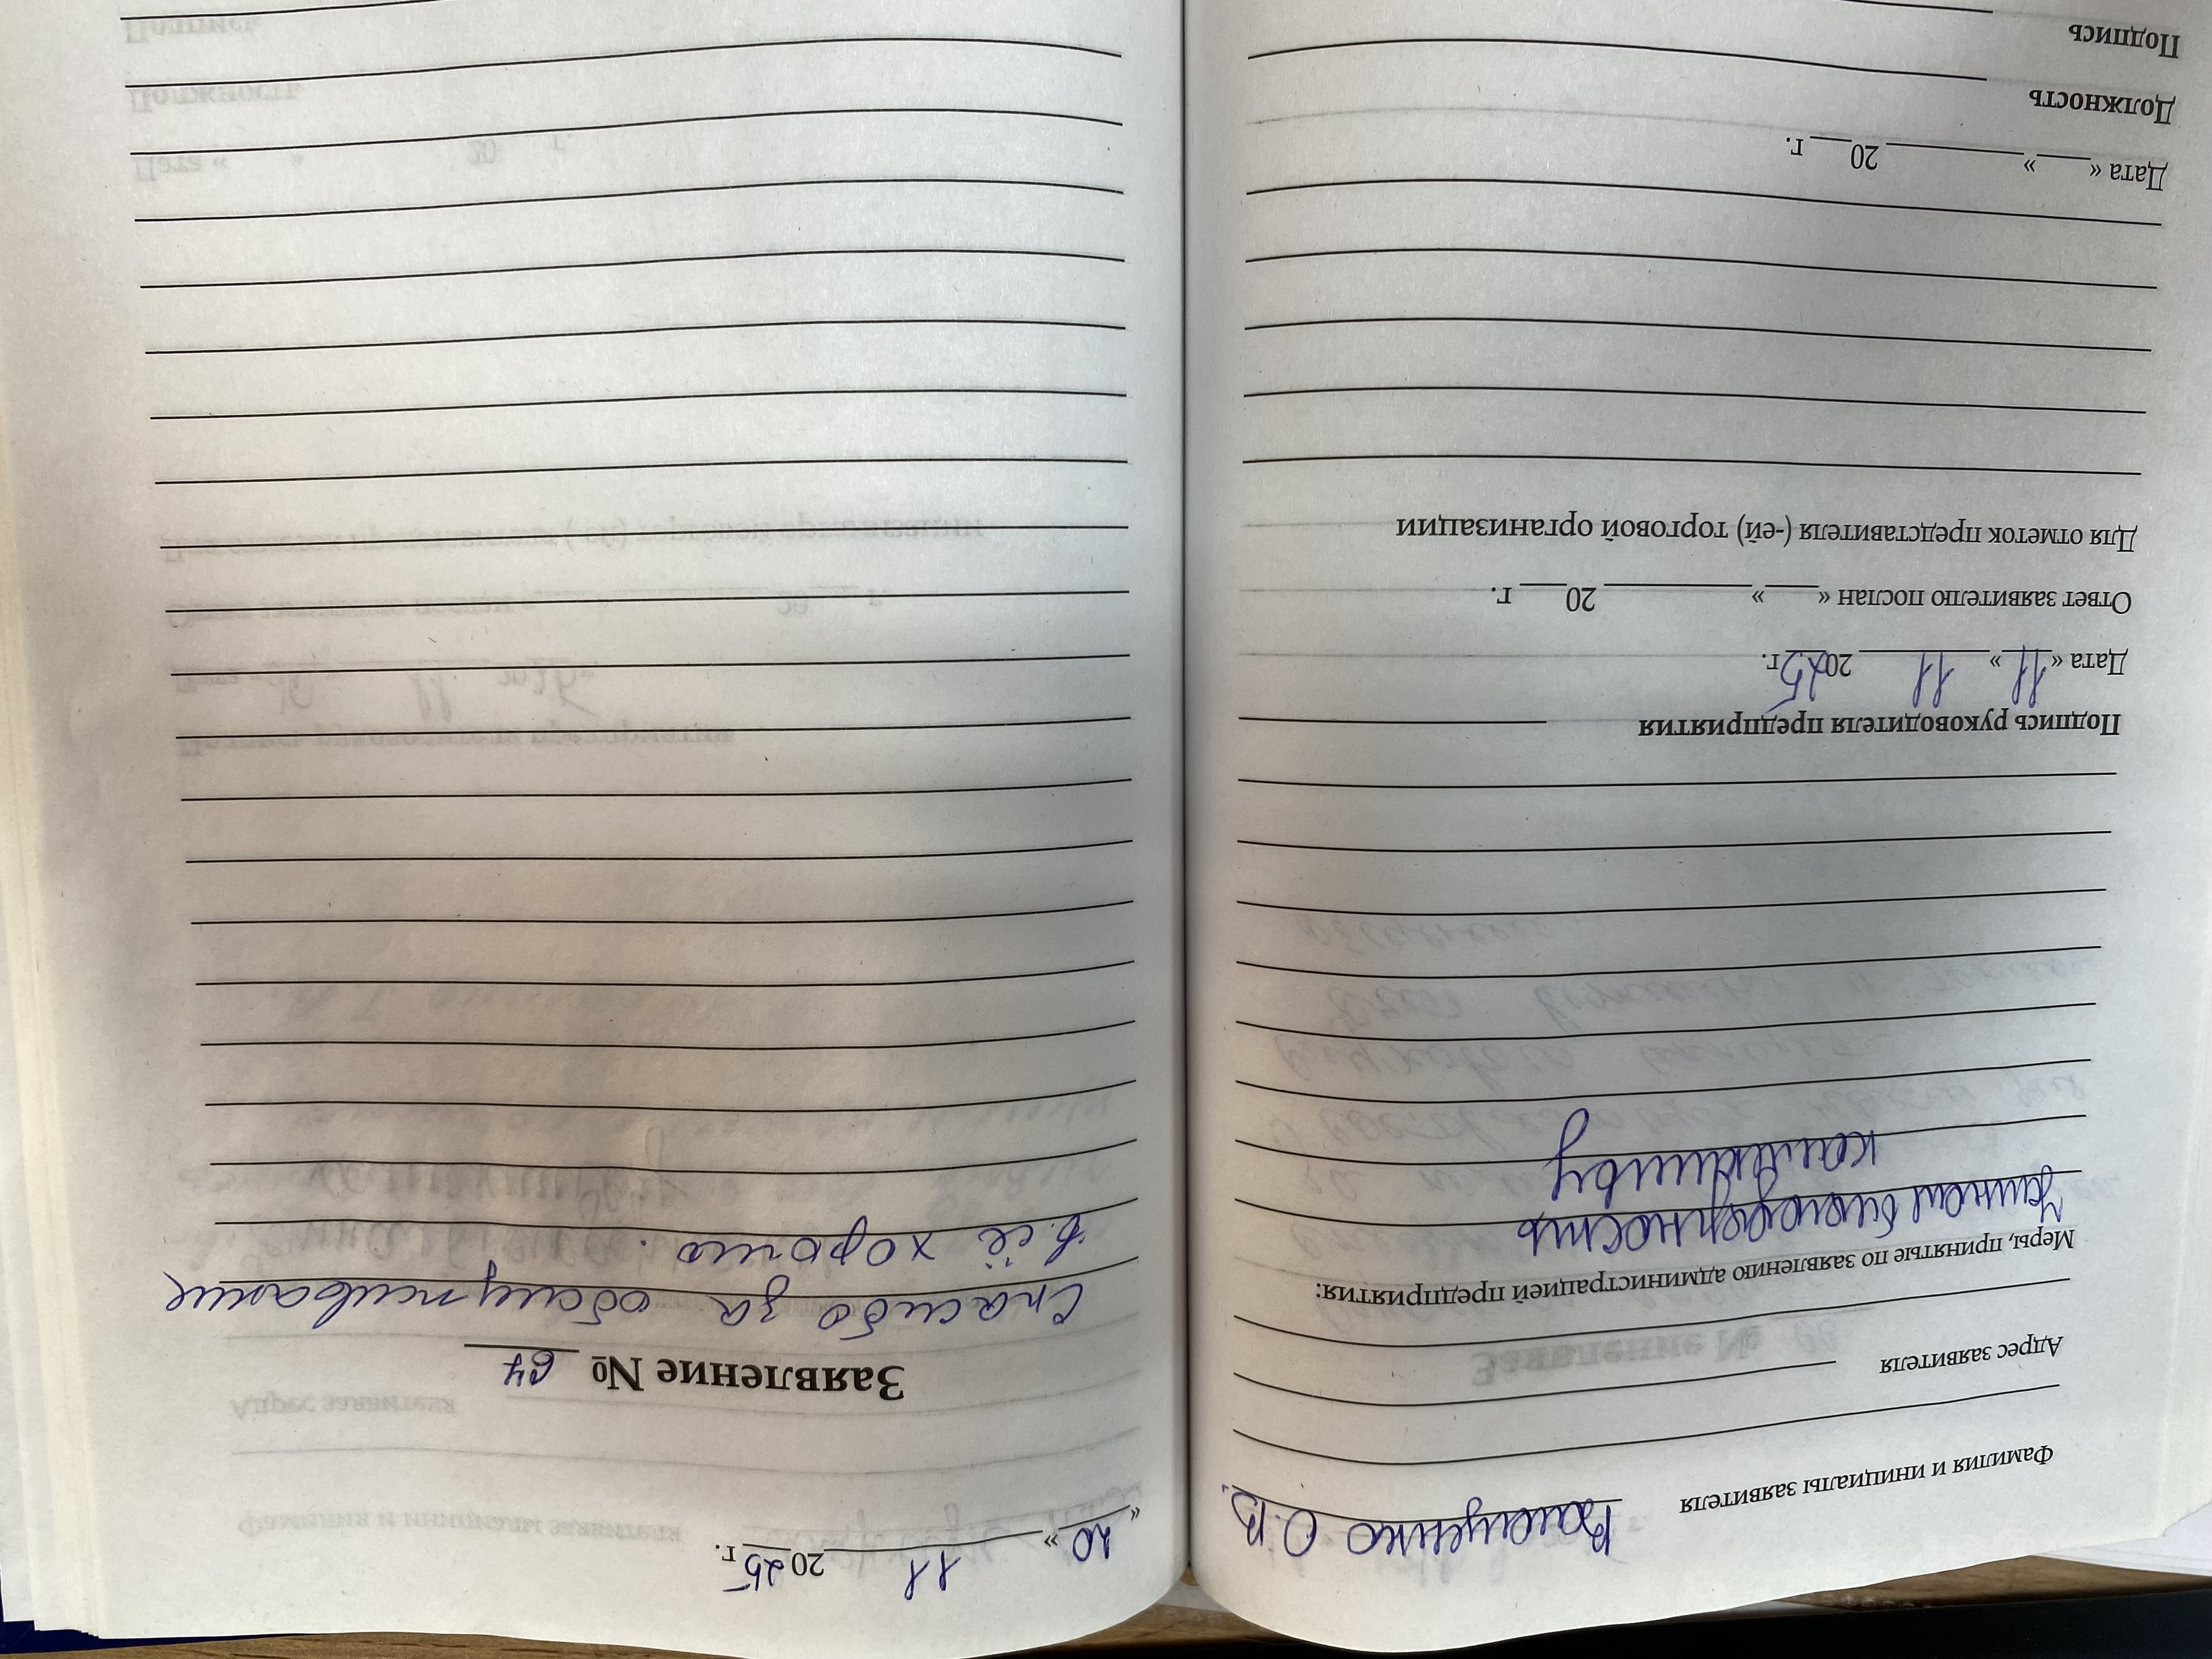 Фамилия и инициалы заявителя О.В.
Адрес заявителя
Меры, принятые по заявлению администрацией предприятия:
Устная благодарность
коллективу
Подпись руководителя предприятия
Дата « 11 » 11 2025г.
Ответ заявителю послан «___» ______ 20__ г.
Для отметок представителя (-ей) торговой организации
Дата «___» ______ 20__ г.
Должность
Подпись
« 10 » 11 2025 г.
Заявление № 64
Спасибо за обслуживание
всё хорошо.